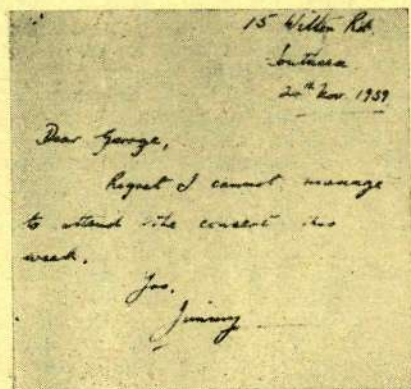 15 Wilton Rd.
Southsea
20th Nov. 1959
Dear George,
Regret I cannot manage
to attend the concert this
week.
Yrs.
Jimmy